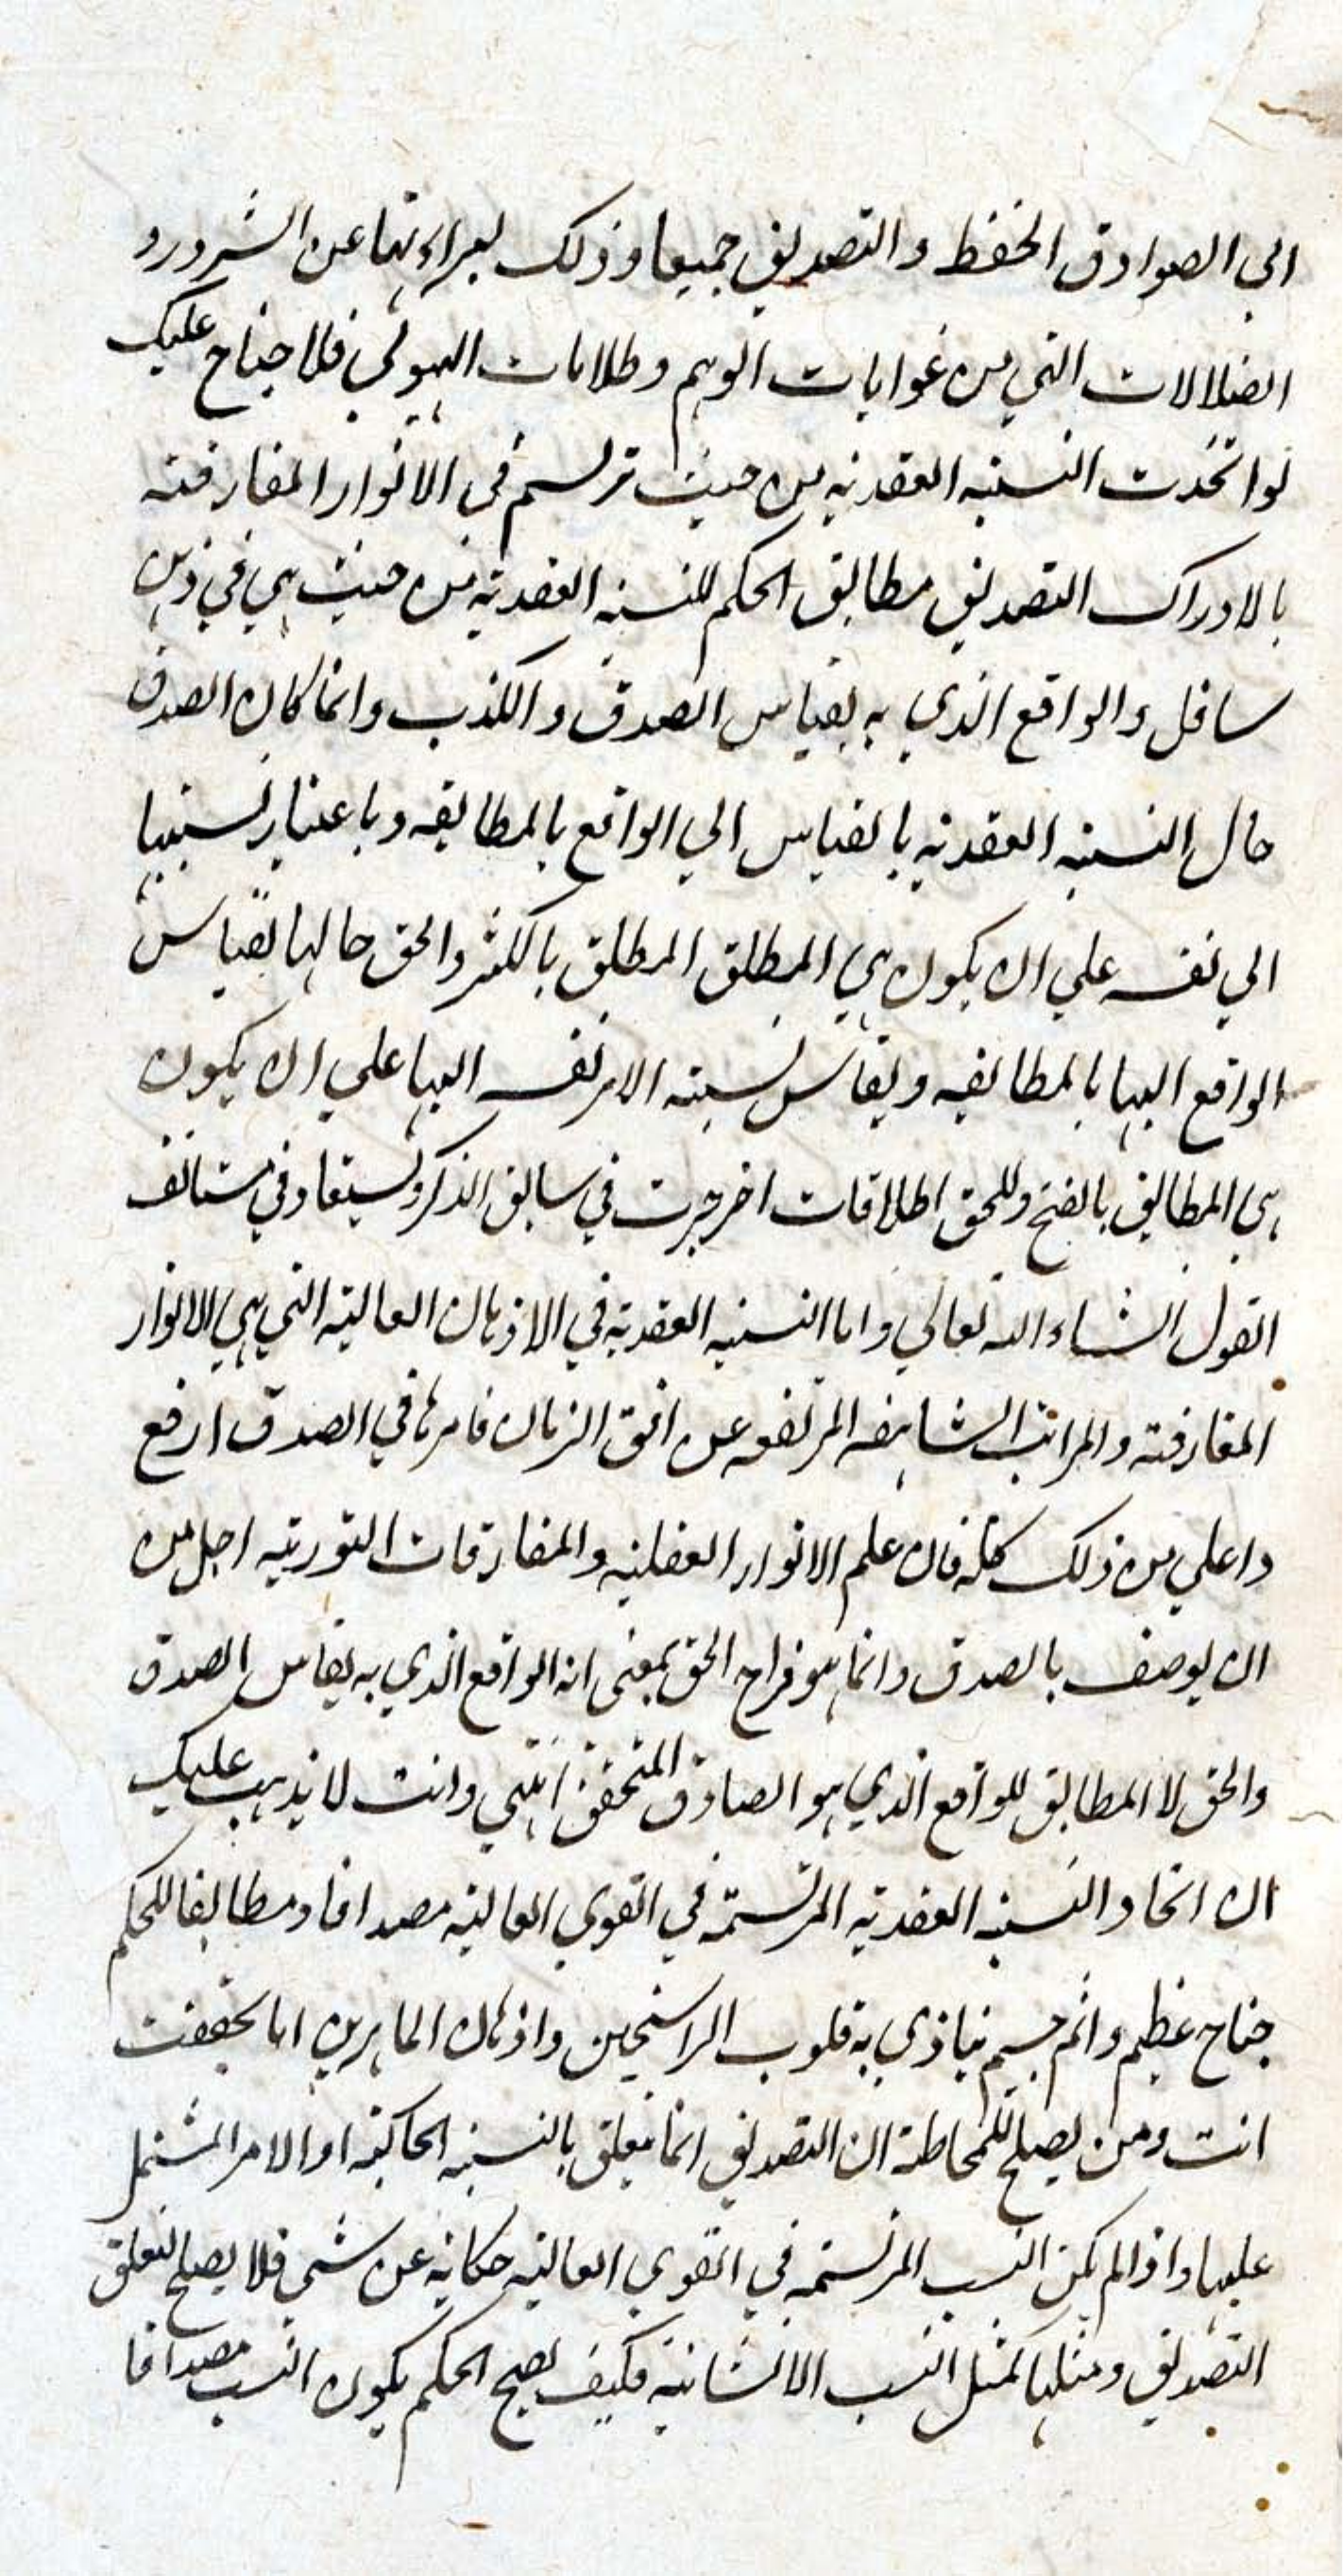 الي الصوادق الحفظ والتصديق جميعا وذلك لبراءتهما عن الشرور و
الضلالات التي من غوايات الوهم وظلامات الهيولي فلا جناح عليك
لو اتخذت النسبة العقدية من حيث ترتسم في الانوار المفارقة
بالادراك التصديق مطابق الحكم للنسبة العقدية من حيث هي في ذهن
سافل والواقع الذي به يقياس الصدق والكذب وانما كان الصدق
حال النسبة العقدية بالقياس الي الواقع بالمطابقه وباعتبار نسبتها
الي نفسه علي ان يكون هي المطلق المطلق بالكسر والحق حالها بقياس
الواقع اليها بالمطابقه ويقاس نسبته الامر نفسه اليها علي ان يكون
هي المطابق بالفتح وللحق اطلاقات اخر جرت في سابق الذكر وستعاد في مستانف
القول انشاء الله تعالي واما النسبة العقدية في الاذهان العالية التي هي الانوار
المفارقة والمراتب الشاهقه المرتفعه عن افق الزمان فامرها في الصدق ارفع
واعلي من ذلك كله فان علم الانوار العقلية والمفارقات النورية اجل من
ان يوصف بالصدق وانما هو فراح الحق بمعنى انه الواقع الذي به يقاس الصدق
والحق لا المطابق للواقع الذي هو الصادق المتحقق انتهي وانت لا يذهب عليك
ان اتخاذ النسبة العقدية المرتسمة في القوي العالية مصداقا ومطابقا للحكم
جناح عظيم واثم جسيم يتاذي به قلوب الراسخين واذهان الماهرين اما تحققت
انت ومن يصلح للمخاطبة ان التصديق انما يتعلق بالنسبة الحاكية او الامر المشتمل
عليها واذا لم يكن النسب المرتسمة في القوي العالية حكاية عن شي فلا يصلح لتعلق
التصديق ومثلها كمثل النسب الانشائية فكيف يصح الحكم بكون النسب مصداقا